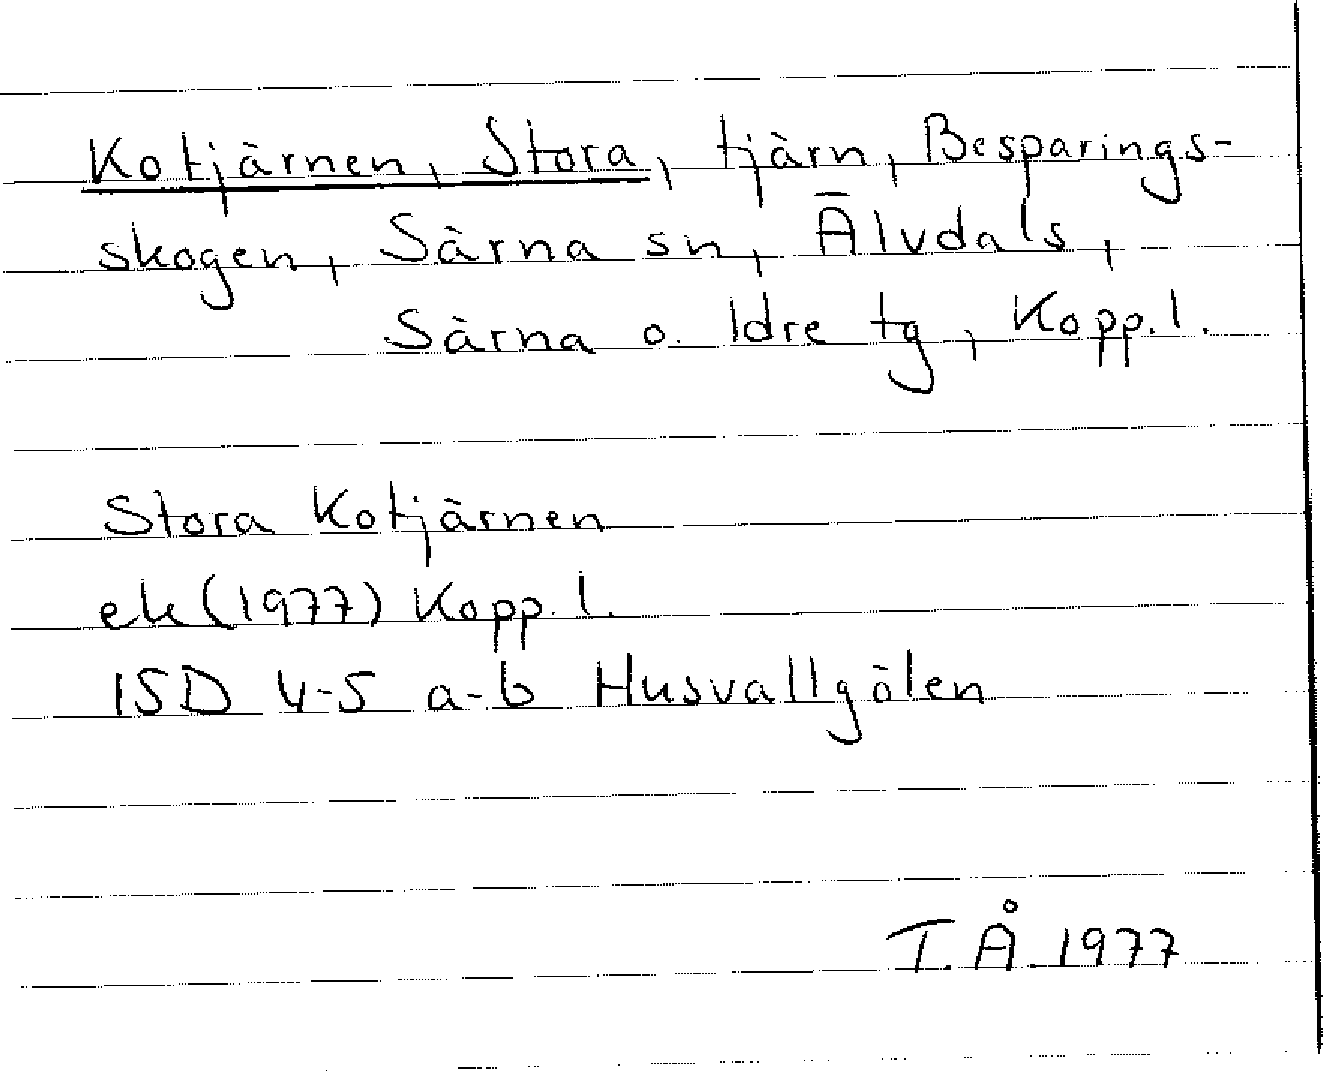 Kotjärnen, Stora, tjärn, Besparings-
skogen, Särna sn, Älvdals,
Särna o. Idre tg, Kopp.l.
Stora Kotjärnen
ek(1977) Kopp.l.
15D 4-5 a-b Husvallgölen
T.Å.1977